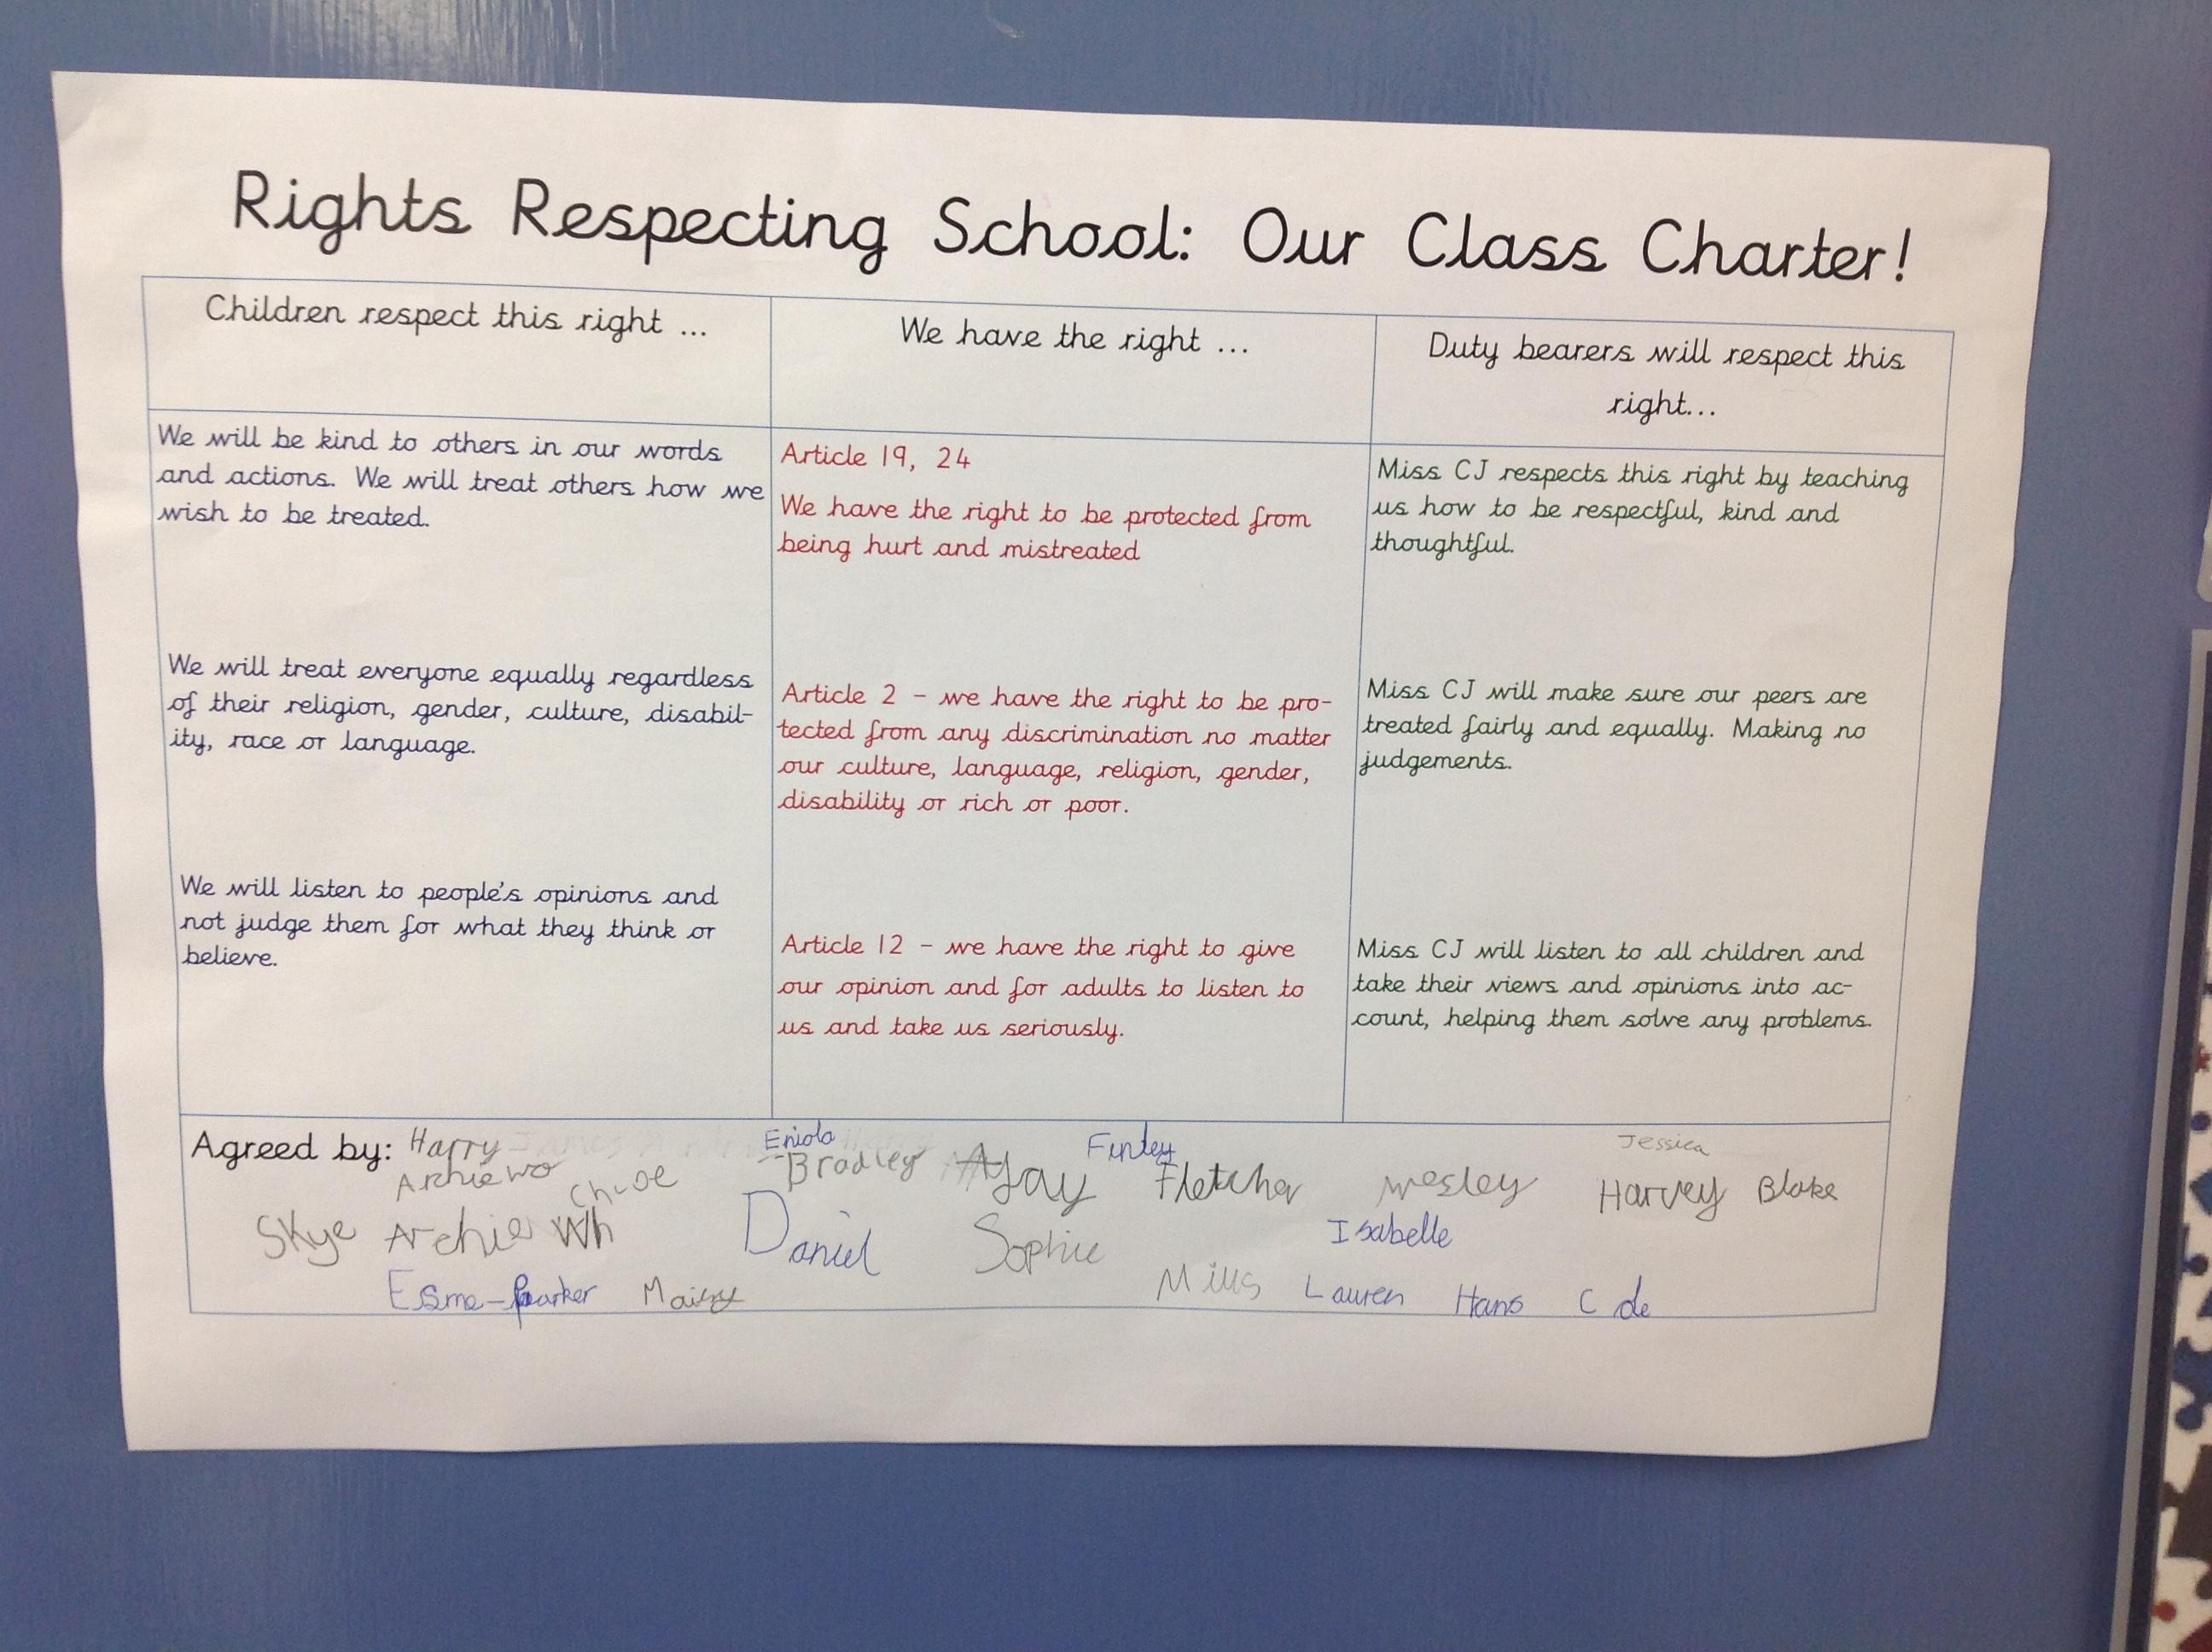 Rights Respecting School: Our Class Charter!
Children respect this right ...
We have the right ...
Duty bearers will respect this
right...
We will be kind to others in our words
and actions. We will treat others how we
wish to be treated.
We will treat everyone equally regardless
of their religion, gender, culture, disabil-
ity, race or language.
We will listen to people's opinions and
not judge them for what they think or
believe.
Article 19, 24
We have the right to be protected from
being hurt and mistreated
Article 2 - we have the right to be pro-
tected from any discrimination no matter
our culture, language, religion, gender,
disability or rich or poor.
Article 12 - we have the right to give
our opinion and for adults to listen to
us and take us seriously.
Miss CJ respects this right by teaching
us how to be respectful, kind and
thoughtful.
Miss CJ will make sure our peers are
treated fairly and equally. Making no
judgements.
Miss CJ will listen to all children and
take their views and opinions into ac-
count, helping them solve any problems.
Agreed by: Harry Eniola Finley Jessica
Archie Wo Chloe Bradley Jay Fletcher Wesley Harvey Blake
Skye Archie Wh Daniel Sophie Isabelle
Esme-Parker Lauren Hans